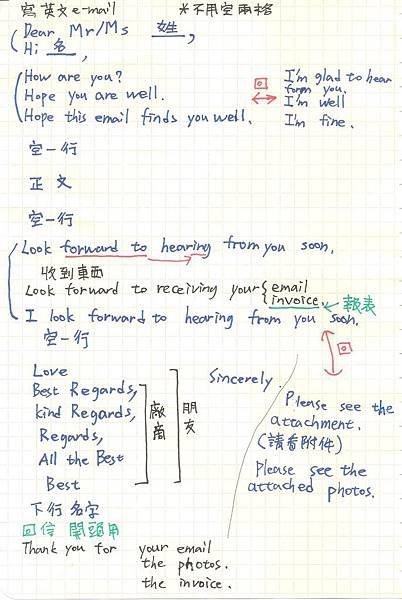 寫英文e-mail  *不用空兩格
Dear Mr/Ms 姓,
Hi 名,
How are you?
Hope you are well.
Hope this email finds you well.
回
I'm glad to hear
from you.
I'm well
I'm fine.
空一行
正文
空一行
Look forward to hearing from you soon.
收到東西
Look forward to receiving your email
invoice. 報表
I look forward to hearing from you soon.
回
空一行
Love
Best Regards,
kind Regards,
Regards,
All the Best
Best
廠商
朋友
Sincerely.
Please see the
attachment.
(請看附件)
Please see the
attached photos.
下行名字
回信 開頭用
Thank you for your email
the photos.
the invoice.